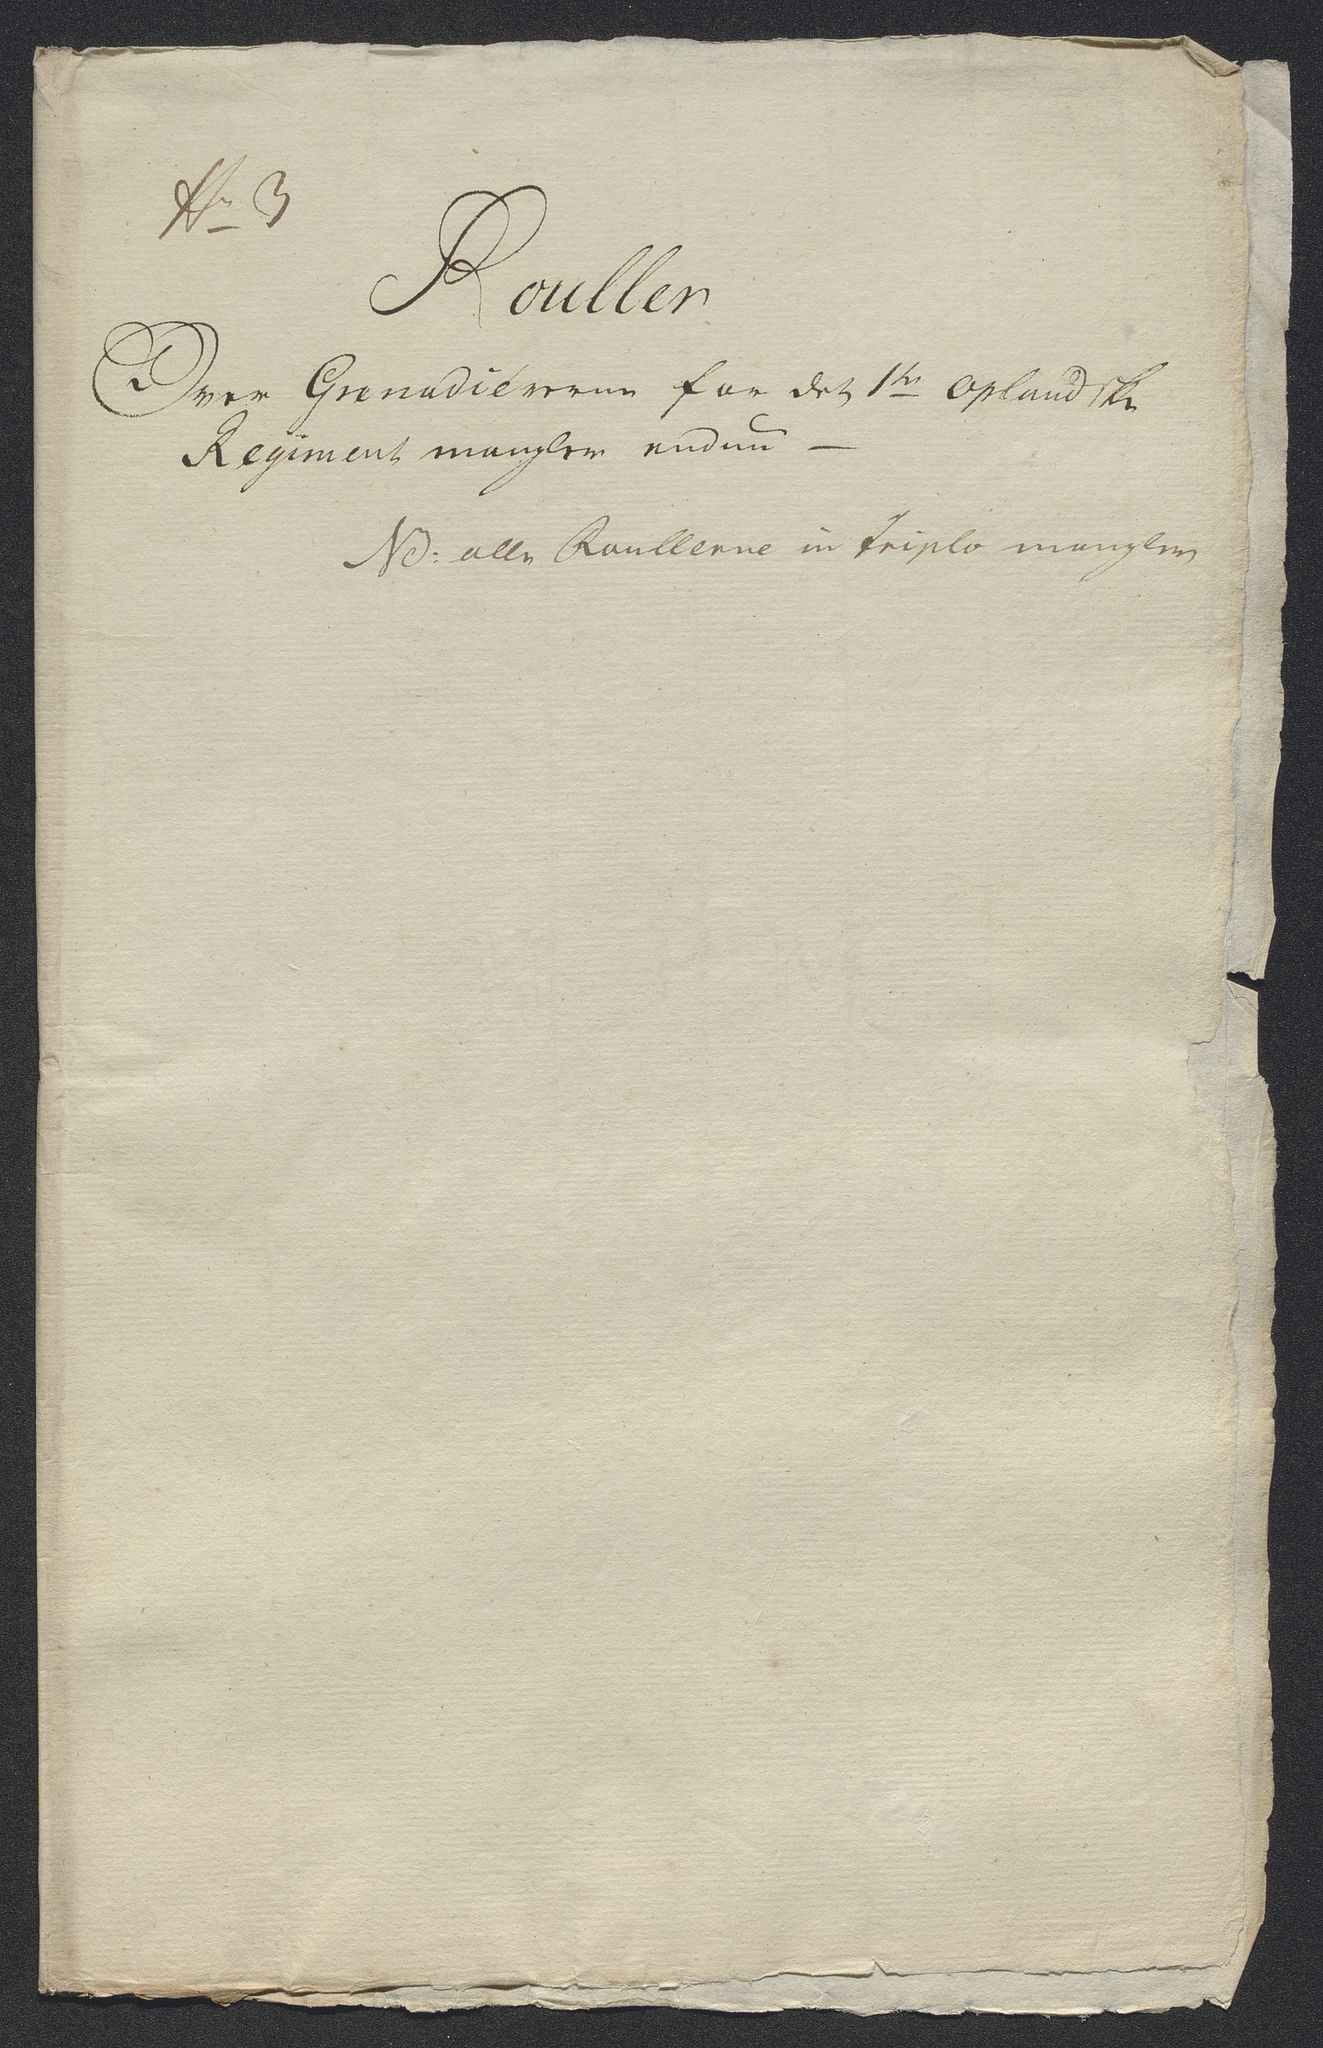 No 3
Rouller
Over Grenadiererne for det 1te Oplandske
Regiment mangler endnu —
NB: alle Roullerne in triplo mangler